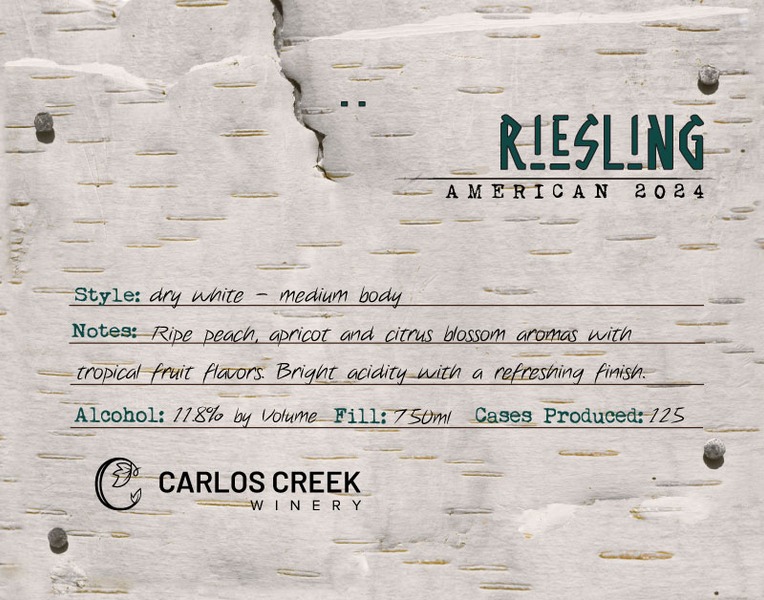 RIESLING
AMERICAN 2024
Style: dry white - medium body
Notes: Ripe peach, apricot and citrus blossom aromas with
tropical fruit flavors. Bright acidity with a refreshing finish.
Alcohol: 11.8% by Volume Fill: 750ml Cases Produced: 125
CARLOS CREEK
WINERY